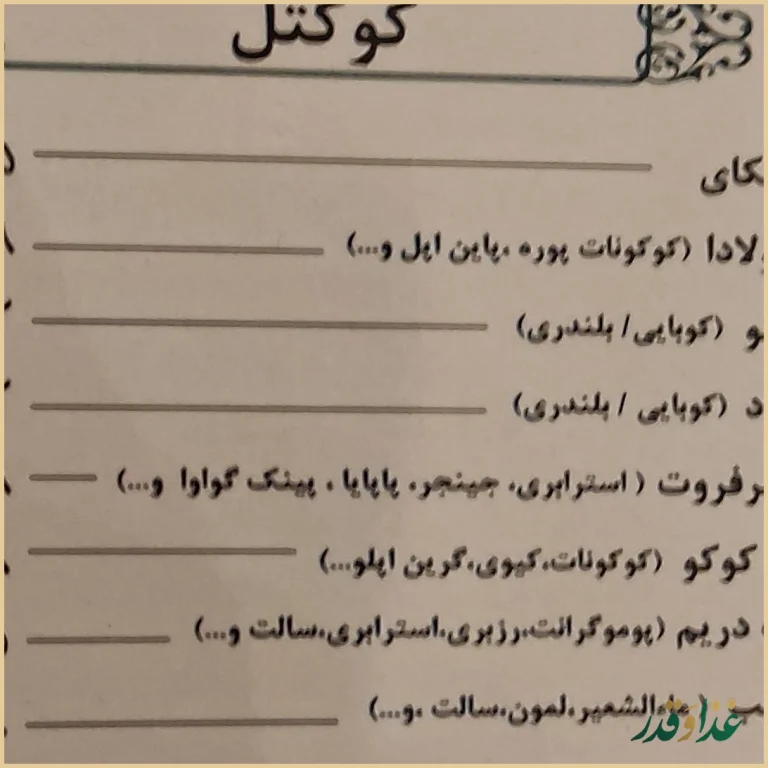 کوکتل
کای
لادا (کوکونات پوره ،پاین اپل و...)
و (کوبایی/ بلندری)
د (کوبایی / بلندری)
رفروت ( استرابری، جینجر، پاپایا ، پینک گواوا و...)
کوکو (کوکونات،کیوی،گرین اپلو...)
دریم (پوموگرانت،رزبری،استرابری،سالت و...)
ب (ماءالشعیر،لمون،سالت ،و...)
غذا و قدر